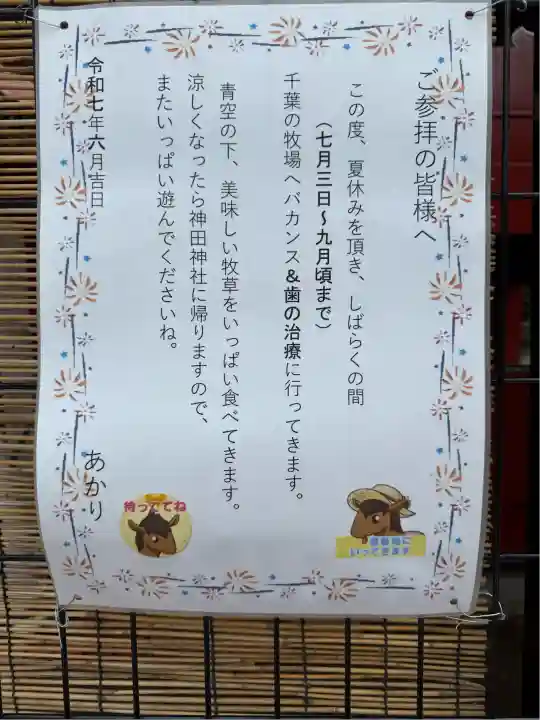 ご参拝の皆様へ
この度、夏休みを頂き、しばらくの間
（七月三日～九月頃まで）
千葉の牧場へバカンス＆歯の治療に行ってきます。
青空の下、美味しい牧草をいっぱい食べてきます。
涼しくなったら神田神社に帰りますので、
またいっぱい遊んでくださいね。
令和七年六月吉日
あかり
待っててね
いってきます